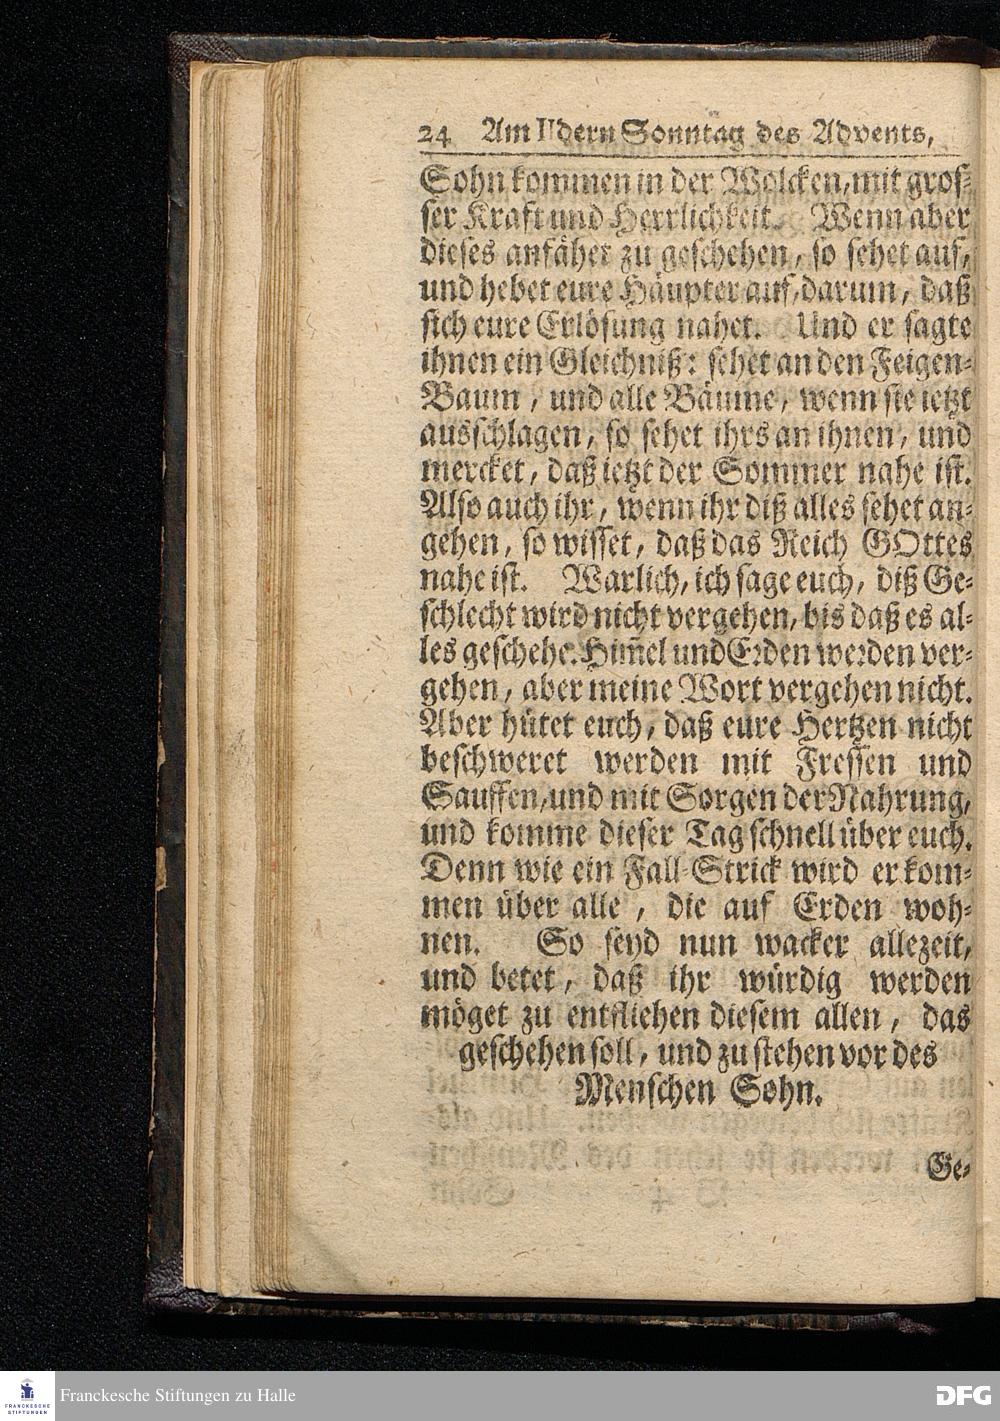 24 Am IIdern Sonntag des Advents,
Sohn kommen in der Wolcken, mit gros-
ser Kraft und Herrlichkeit. Wenn aber
dieses anfähet zu geschehen, so sehet auf,
und hebet eure Häupter auf, darum, daß
sich eure Erlösung nahet. Und er sagte
ihnen ein Gleichniß: sehet an den Feigen-
Baum, und alle Bäume, wenn sie ietzt
ausschlagen, so sehet ihrs an ihnen, und
mercket, daß ietzt der Sommer nahe ist.
Also auch ihr, wenn ihr diß alles sehet an-
gehen, so wisset, daß das Reich GOttes
nahe ist. Warlich, ich sage euch, diß Ge-
schlecht wird nicht vergehen, bis daß es al-
les geschehe. Him̄el und Erden werden ver-
gehen, aber meine Wort vergehen nicht.
Aber hütet euch, daß eure Hertzen nicht
beschweret werden mit Fressen und
Sauffen, und mit Sorgen der Nahrung,
und komme dieser Tag schnell über euch.
Denn wie ein Fall-Strick wird er kom-
men über alle, die auf Erden woh-
nen. So seyd nun wacker allezeit,
und betet, daß ihr würdig werden
möget zu entfliehen diesem allen, das
geschehen soll, und zu stehen vor des
Menschen Sohn.
Ge-
FRANCKESCHE STIFTUNGEN
Franckesche Stiftungen zu Halle
DFG